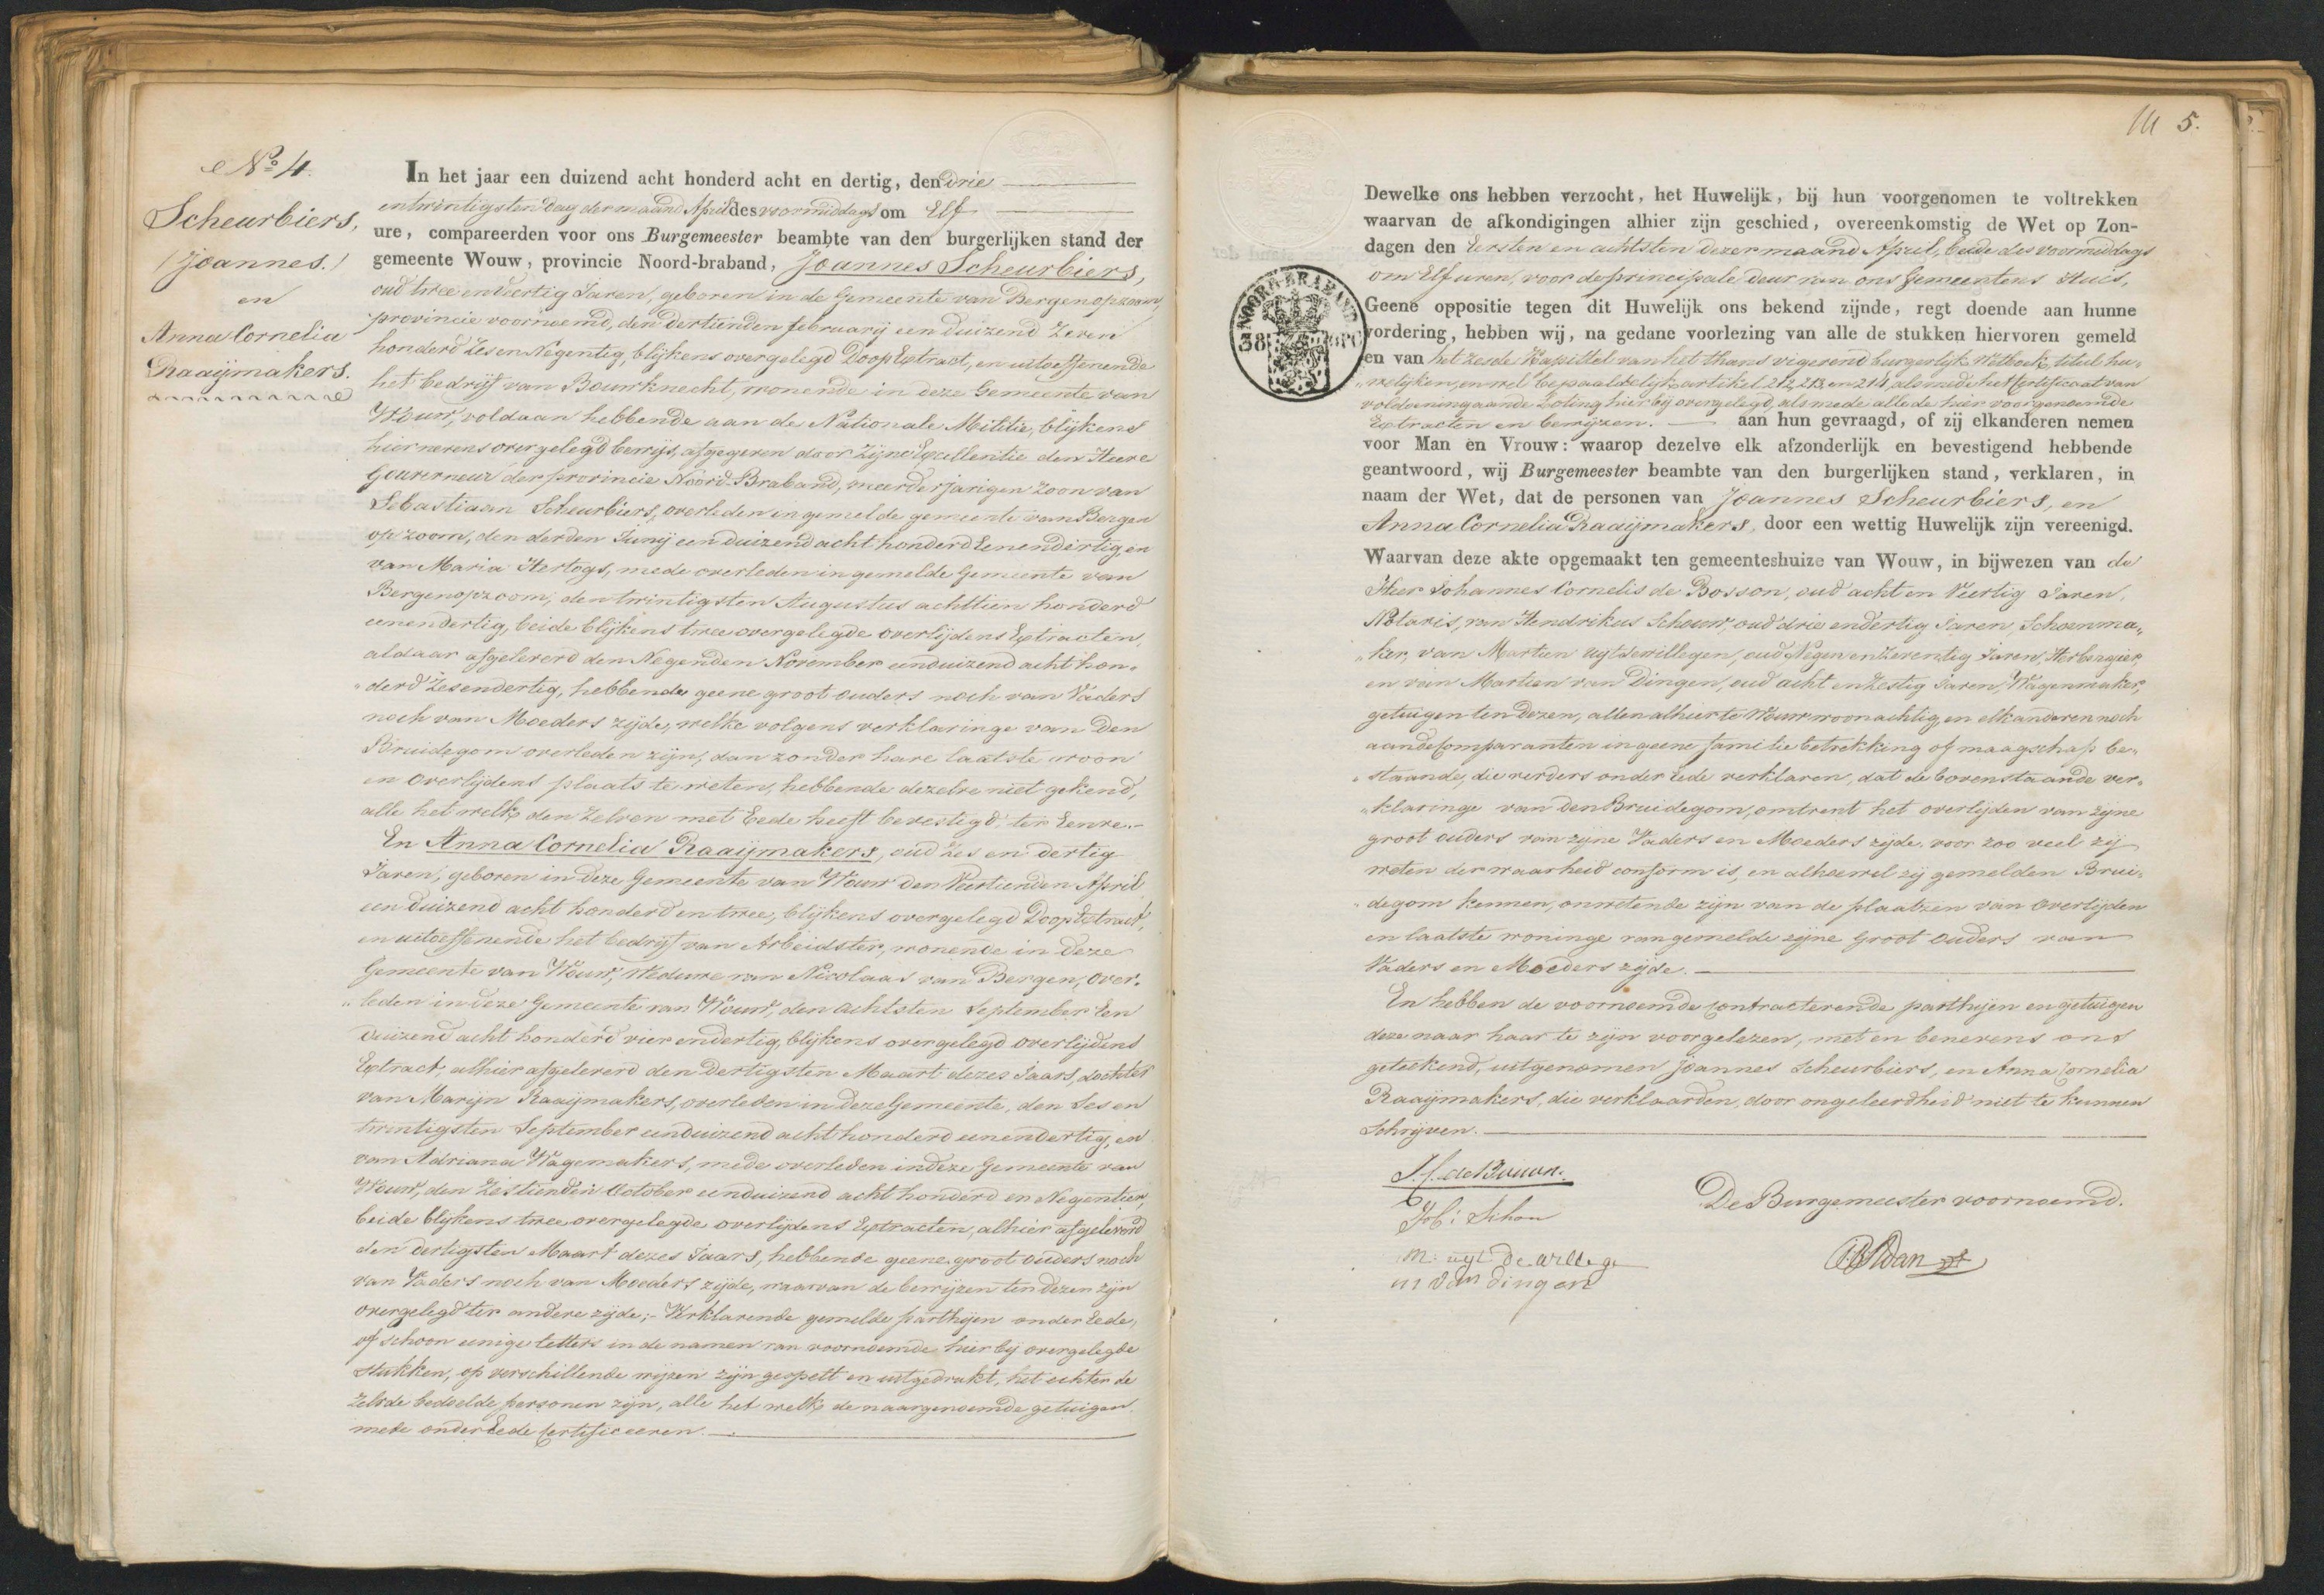 No. 4.
Scheurbiers,
(Joannes.)
en
Anna Cornelia
Raaijmakers.
In het jaar een duizend acht honderd acht en dertig, den drie
entwintigsten dag der maand April des voormiddags om Elf
ure, compareerden voor ons Burgemeester beambte van den burgerlijken stand der
gemeente Wouw, provincie Noord-braband, Joannes Scheurbiers,
oud twee en veertig Jaren, geboren in de Gemeente van Bergenopzoom,
provincie voornoemd, den dertienden februarij een duizend Zeven
honderd Zes en Negentig, blijkens overgelegd Doop Extract, en uitoeffenende
het bedrijf van Bouwknecht, wonende in deze Gemeente van
Wouw, voldaan hebbende aan de Nationale Militie, blijkens
hiernevens overgelegd bewijs, afgegeven door Zijne Excellentie den Heere
Gouverneur der provincie Noord-Braband, meerderjarigen Zoon van
Sebastiaan Scheurbiers, overleden in gemelde gemeente van Bergen
op zoom, den derden Junij een duizend acht honderd Eenendertig en
van Maria Hertogs, mede overleden in gemelde Gemeente van
Bergenopzoom, den twintigsten Augustus achttien honderd
eenendertig, beide blijkens twee overgelegde overlijdens Extracten,
aldaar afgeleverd den Negenden November eenduizend acht hon„
„derd Zesendertig, hebbende geene groot ouders noch van Vaders
noch van Moeders zijde, welke volgens verklaringe van den
Bruidegom overleden zijn, dan zonder hare laatste woon
en Overlijdens plaats te weten, hebbende dezelve niet gekend,
alle het welk den Zelven met Eede heeft bevestigd, ter Eenre.-
En Anna Cornelia Raaijmakers, oud Zes en dertig
Jaren, geboren in deze Gemeente van Wouw den Veertienden April
een duizend acht honderd en twee, blijkens overgelegd Doop Extract,
en uitoeffenende het bedrijf van Arbeidster, wonende in deze
Gemeente van Wouw, Weduwe van Nicolaas van Bergen, Over„
„leden in deze Gemeente van Wouw, den achtsten September Een
duizend acht honderd vier endertig, blijkens overgelegd overlijdens
Extract, alhier afgeleverd den Dertigsten Maart dezes Jaars, dochter
van Marijn Raaijmakers, overleden in deze Gemeente, den Ses en
twintigsten September eenduizend acht honderd eenendertig, en
van Adriana Wagemakers, mede overleden in deze Gemeente van
Wouw, den Zestienden October eenduizend acht honderd en Negentien,
beide blijkens twee overgelegde overlijdens Extracten, alhier afgeleverd
den dertigsten Maart dezes Jaars, hebbende geene groot ouders noch
van Vaders noch van Moeders zijde, waarvan de bewijzen ten dezen zijn
overgelegd ter andere zijde;- Verklarende gemelde parthijen onder Eede,
of schoon eenige letters in de namen van voornoemde hier bij overgelegde
stukken, op verschillende wijzen zijn gespelt en uitgedrukt, het echter de
Zelvde bedoelde personen zijn, alle het welk de naargenoemde getuigen
mede onder Eede Certificeeren.
111 5.
Dewelke ons hebben verzocht, het Huwelijk, bij hun voorgenomen te voltrekken
waarvan de afkondigingen alhier zijn geschied, overeenkomstig de Wet op Zon-
dagen den Eersten en achtsten dezer maand April, beide des voormiddags
om Elf uren, voor de principale deur van ons Gemeentens Huis,
NOORD-BRABAND
38
Geene oppositie tegen dit Huwelijk ons bekend zijnde, regt doende aan hunne
vordering, hebben wij, na gedane voorlezing van alle de stukken hiervoren gemeld
en van het zesde Kapittel van het thans vigerend burgerlijk Wetboek, titel hu„
„welijken, en wel bepaaldelijk artikel 212, 213, en 214, alsmede het Certificaat van
voldoening aan de Loting hier bij overgelegd, als mede alle de hier voorgenoemde
Extracten en bewijzen. aan hun gevraagd, of zij elkanderen nemen
voor Man en Vrouw: waarop dezelve elk afzonderlijk en bevestigend hebbende
geantwoord, wij Burgemeester beambte van den burgerlijken stand, verklaren, in
naam der Wet, dat de personen van Joannes Scheurbiers, en
Anna Cornelia Raaijmakers, door een wettig Huwelijk zijn vereenigd.
Waarvan deze akte opgemaakt ten gemeenteshuize van Wouw, in bijwezen van de
Heer Johannes Cornelis de Bosson, oud acht en Veertig Jaren,
Notaris, van Hendrikus Schouw, oud drie endertig Jaren, Schoenma„
„ker, van Martien uytdewillegen, oud Negen en Zeventig Jaren, Herbergier,
en van Martien van Dingen, oud acht en Zestig Jaren, Wagenmaker,
getuigen ten dezen, allen alhier te Wouw woonachtig, en elkanderen noch
aan de Comparanten in geene familie betrekking of maagschap be„
„staande, die verders onder Eede verklaren, dat de bovenstaande ver„
„klaringe van den Bruidegom, omtrent het overlijden van zijne
groot ouders van zijne Vaders en Moeders zijde, voor zoo veel zij
weten der waarheid conform is, en alhoewel zij gemelden Brui„
„degom kennen, onwetende zijn van de plaatzen van Overlijden
en laatste woninge van gemelde zijne Groot Ouders van
Vaders en Moeders zijde.
En hebben de voornoemde Contracterende parthijen en getuigen
deze naar haar te zijn voorgelezen, met en benevens ons
geteekend, uitgenomen Joannes Scheurbiers, en Anna Cornelia
Raaijmakers, die verklaarden, door ongeleerdheid niet te kunnen
Schrijven.
De Burgemeester voornoemd.
M: uyt de willege
m van dingen